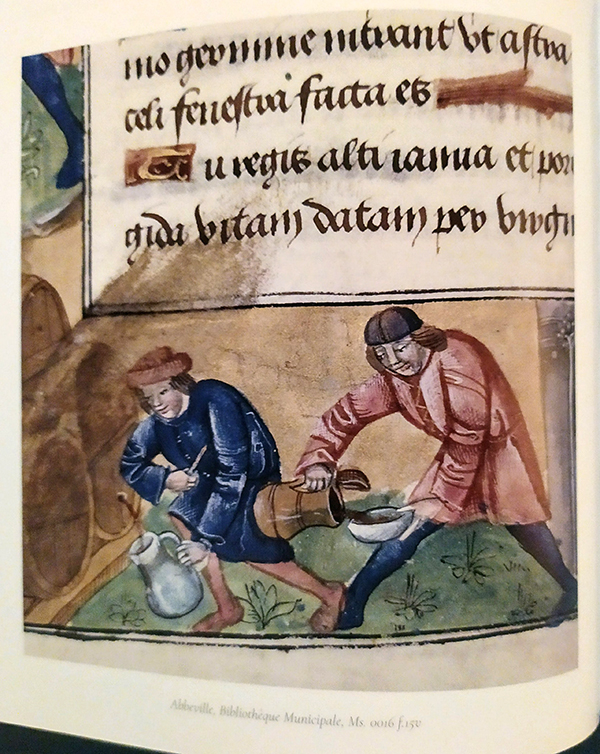 mo germine intrant vt astra
celi fenestra facta es
Tu regis alti ianua et por
gida vitam datam per virgi
Abbeville, Bibliothèque Municipale, Ms. 0016 f.15v